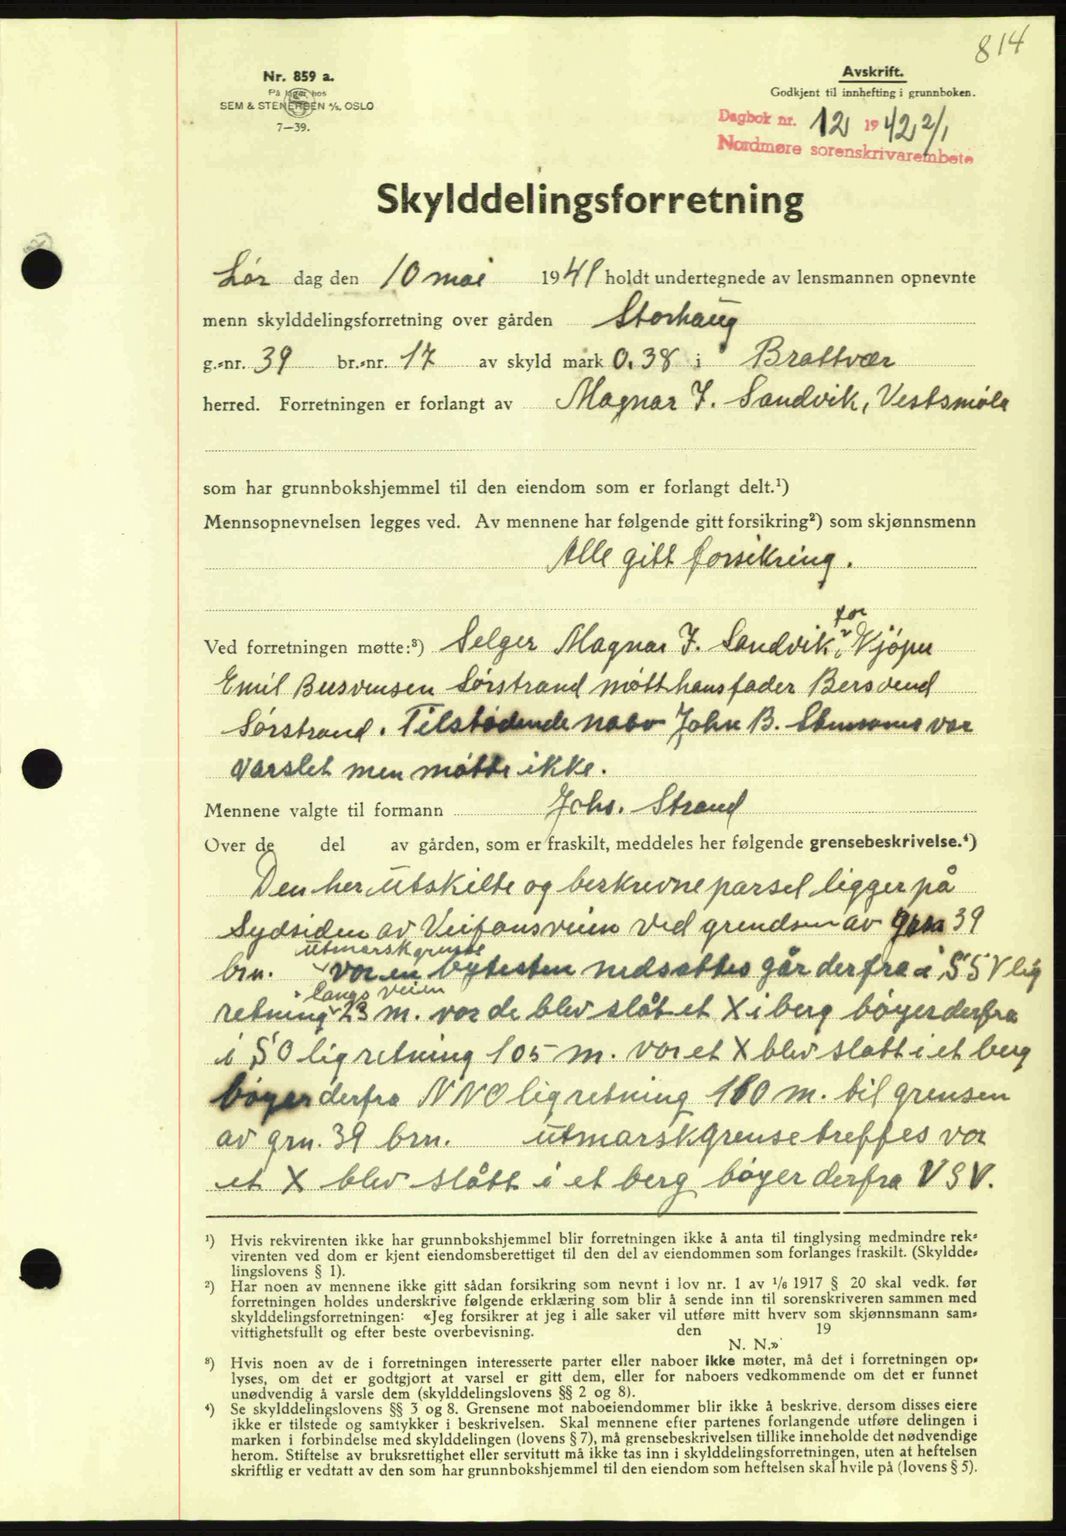 814
Nr. 859 a.
På lager hos
SEM & STENERSEN A/S, OSLO
7—39.
Avskrift.
Godkjent til innhefting i grunnboken.
Dagbok nr. 12 1942 2/1
Nordmøre sorenskrivarembete
Skylddelingsforretning
Lør dag den 10 mai 1941 holdt undertegnede av lensmannen opnevnte
menn skylddelingsforretning over gården Storhaug
g.-nr. 39 br.-nr. 17 av skyld mark 0.38 i Brattvær
herred. Forretningen er forlangt av Magnar J. Sandvik, Vestsmøla
som har grunnbokshjemmel til den eiendom som er forlangt delt.¹)
Mennsopnevnelsen legges ved. Av mennene har følgende gitt forsikring²) som skjønnsmenn
Alle gitt forsikring.
Ved forretningen møtte:³) Selger Magnar J. Sandvik, for Kjøper
Emil Sørstrand møtt hans fader Bersvend
Sørstrand. Tilstødende nabo John B. var
varslet men møtte ikke.
Mennene valgte til formann Johs. Strand
Over de del av gården, som er fraskilt, meddeles her følgende grensebeskrivelse.⁴)
Den her utskilte og berkrevne parsel ligger på
Sydsiden av veien ved grendsen av 39
utmarskgrense
brn. vor en bytesten nedsattes går derfra i SSV lig
langs veien
retning 23 m. vor de blev slåt et X i berg bøyer derfra
i SO lig retning 105 m. vor et X blev slått i et berg
bøyer derfra NNO lig retning 160 m. til grensen
av grn. 39 brn. utmarskgrense treffes vor
et X blev slått i et berg bøyer derfra VSV.
¹) Hvis rekvirenten ikke har grunnbokshjemmel blir forretningen ikke å anta til tinglysing medmindre rek-
virenten ved dom er kjent eiendomsberettiget til den del av eiendommen som forlanges fraskilt. (Skyldde-
lingslovens § 1).
²) Har noen av mennene ikke gitt sådan forsikring som nevnt i lov nr. 1 av 1/6 1917 § 20 skal vedk. før
forretningen holdes underskrive følgende erklæring som blir å sende inn til sorenskriveren sammen med
skylddelingsforretningen: «Jeg forsikrer at jeg i alle saker vil utføre mitt hverv som skjønnsmann sam-
vittighetsfullt og efter beste overbevisning. den 19
N. N.»
³) Hvis noen av de i forretningen interesserte parter eller naboer ikke møter, må det i forretningen op-
lyses, om det er godtgjort at varsel er gitt dem, eller for naboers vedkommende om det er funnet
unødvendig å varsle dem (skylddelingslovens §§ 2 og 8).
⁴) Se skylddelingslovens §§ 3 og 8. Grensene mot naboeiendommer blir ikke å beskrive, dersom disses eiere
ikke er tilstede og samtykker i beskrivelsen. Skal mennene efter partenes forlangende utføre delingen i
marken i forbindelse med skylddelingen (lovens § 7), må grensebeskrivelsen tillike inneholde det nødvendige
herom. Stiftelse av bruksrettighet eller servitutt må ikke tas inn i skylddelingsforretningen, uten at heftelsen
skriftlig er vedtatt av den som har grunnbokshjemmel til den eiendom som heftelsen skal hvile på (lovens § 5).